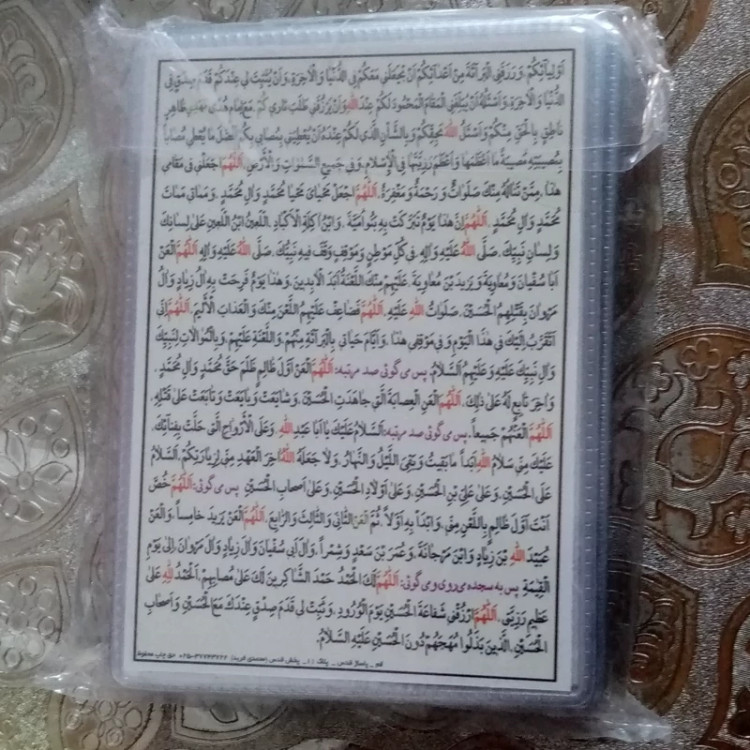 اَوْلِیٰآئِکُمْ. وَ رَزَقَنِی الْبَرٰآئَةَ مِنْ اَعْدٰآئِکُمْ اَنْ یَجْعَلَنِی مَعَکُمْ فِی الدُّنْیٰا وَ الْاٰخِرَةِ. وَ اَنْ یُثَبِّتَ لِی عِنْدَکُمْ قَدَمَ صِدْقٍ فِی
الدُّنْیٰا وَ الْاٰخِرَةِ. وَ اَسْئَلُهُ اَنْ یُبَلِّغَنِی الْمَقٰامَ الْمَحْمُودَ لَکُمْ عِنْدَ اللهِ وَ اَنْ یَرْزُقَنِی طَلَبَ ثٰارِی کُمْ مَعَ اِمٰامِ هُدًی ظٰاهِرٍ
نٰاطِقٍ بِالْحَقِّ مِنْکُمْ وَ اَسْئَلُ اللهَ بِحَقِّکُمْ وَ بِالشَّأْنِ الَّذِی لَکُمْ عِنْدَهُ اَنْ یُعْطِیَنِی بِمُصٰابِی بِکُمْ اَفْضَلَ مٰا یُعْطِی مُصٰاباً
بِمُصِیبَتِهِ مُصِیبَةً مٰا اَعْظَمَهٰا وَ اَعْظَمَ رَزِیَّتَهٰا فِی الْاِسْلٰامِ. وَ فِی جَمِیعِ السَّمٰوٰاتِ وَ الْاَرْضِ. اَللّٰهُمَّ اجْعَلْنِی فِی مَقٰامِی
هٰذٰا. مِمَّنْ تَنٰالُهُ مِنْکَ صَلَوٰاتٌ وَ رَحْمَةٌ وَ مَغْفِرَةٌ. اَللّٰهُمَّ اجْعَلْ مَحْیٰایَ مَحْیٰا مُحَمَّدٍ وَ اٰلِ مُحَمَّدٍ. وَ مَمٰاتِی مَمٰاتَ
مُحَمَّدٍ وَ اٰلِ مُحَمَّدٍ. اَللّٰهُمَّ اِنَّ هٰذٰا یَوْمٌ تَبَرَّکَتْ بِهِ بَنُو اُمَیَّةَ. وَ ابْنُ اٰکِلَةِ الْاَکْبٰادِ. اللَّعِینُ ابْنُ اللَّعِینِ عَلٰی لِسٰانِکَ
وَ لِسٰانِ نَبِیِّکَ. صَلَّی اللهُ عَلَیْهِ وَ اٰلِهِ. فِی کُلِّ مَوْطِنٍ وَ مَوْقِفٍ وَقَفَ فِیهِ نَبِیُّکَ. صَلَّی اللهُ عَلَیْهِ وَ اٰلِهِ اَللّٰهُمَّ الْعَنْ
اَبٰا سُفْیٰانَ وَ مُعٰاوِیَةَ وَ یَزِیدَ بْنَ مُعٰاوِیَةَ. عَلَیْهِمْ مِنْکَ اللَّعْنَةُ اَبَدَ الْاٰبِدِینَ. وَ هٰذٰا یَوْمٌ فَرِحَتْ بِهِ اٰلُ زِیٰادٍ وَ اٰلُ
مَرْوٰانَ بِقَتْلِهِمُ الْحُسَیْنَ. صَلَوٰاتُ اللهِ عَلَیْهِ. اَللّٰهُمَّ فَضٰاعِفْ عَلَیْهِمُ اللَّعْنَ مِنْکَ وَ الْعَذٰابَ الْاَلِیمَ. اَللّٰهُمَّ اِنِّی
اَتَقَرَّبُ اِلَیْکَ فِی هٰذَا الْیَوْمِ وَ فِی مَوْقِفِی هٰذٰا. وَ اَیّٰامِ حَیٰاتِی بِالْبَرٰآئَةِ مِنْهُمْ. وَ اللَّعْنَةِ عَلَیْهِمْ. وَ بِالْمُوٰالٰاتِ لِنَبِیِّکَ
وَ اٰلِ نَبِیِّکَ عَلَیْهِ وَ عَلَیْهِمُ السَّلٰامُ. پس می گوئی صد مرتبه: اَللّٰهُمَّ الْعَنْ اَوَّلَ ظٰالِمٍ ظَلَمَ حَقَّ مُحَمَّدٍ وَ اٰلِ مُحَمَّدٍ.
وَ اٰخِرَ تٰابِعٍ لَهُ عَلٰی ذٰلِکَ. اَللّٰهُمَّ الْعَنِ الْعِصٰابَةَ الَّتِی جٰاهَدَتِ الْحُسَیْنَ. وَ شٰایَعَتْ وَ بٰایَعَتْ وَ تٰابَعَتْ عَلٰی قَتْلِهِ.
اَللّٰهُمَّ الْعَنْهُمْ جَمِیعاً. پس می گوئی صد مرتبه: اَلسَّلٰامُ عَلَیْکَ یٰا اَبٰا عَبْدِ اللهِ. وَ عَلَی الْاَرْوٰاحِ الَّتِی حَلَّتْ بِفِنٰائِکَ.
عَلَیْکَ مِنِّی سَلٰامُ اللهِ اَبَداً مٰا بَقِیتُ وَ بَقِیَ اللَّیْلُ وَ النَّهٰارُ. وَ لٰا جَعَلَهُ اللهُ اٰخِرَ الْعَهْدِ مِنِّی لِزِیٰارَتِکُمْ. اَلسَّلٰامُ
عَلَی الْحُسَیْنِ. وَ عَلٰی عَلِیِّ بْنِ الْحُسَیْنِ. وَ عَلٰی اَوْلٰادِ الْحُسَیْنِ. وَ عَلٰی اَصْحٰابِ الْحُسَیْنِ. پس می گوئی: اَللّٰهُمَّ خُصَّ
اَنْتَ اَوَّلَ ظٰالِمٍ بِاللَّعْنِ مِنِّی. وَ ابْدَأْ بِهِ اَوَّلاً. ثُمَّ الْعَنِ الثّٰانِیَ وَ الثّٰالِثَ وَ الرّٰابِعَ. اَللّٰهُمَّ الْعَنْ یَزِیدَ خٰامِساً. وَ الْعَنْ
عُبَیْدَ اللهِ بْنَ زِیٰادٍ وَ ابْنَ مَرْجٰانَةَ. وَ عُمَرَ بْنَ سَعْدٍ وَ شِمْراً. وَ اٰلَ اَبِی سُفْیٰانَ وَ اٰلَ زِیٰادٍ وَ اٰلَ مَرْوٰانَ. اِلٰی یَوْمِ
الْقِیٰمَةِ پس به سجده می روی و می گوئی: اَللّٰهُمَّ لَکَ الْحَمْدُ حَمْدَ الشّٰاکِرِینَ لَکَ عَلٰی مُصٰابِهِمْ. اَلْحَمْدُ لِلّٰهِ عَلٰی
عَظِیمِ رَزِیَّتِی. اَللّٰهُمَّ ارْزُقْنِی شَفٰاعَةَ الْحُسَیْنِ یَوْمَ الْوُرُودِ. وَ ثَبِّتْ لِی قَدَمَ صِدْقٍ عِنْدَکَ مَعَ الْحُسَیْنِ وَ اَصْحٰابِ
الْحُسَیْنِ. الَّذِینَ بَذَلُوا مُهَجَهُمْ دُونَ الْحُسَیْنِ عَلَیْهِ السَّلٰامُ.
قم _ پاساژ قدس _ پلاک _ پخش قدس حق چاپ محفوظ